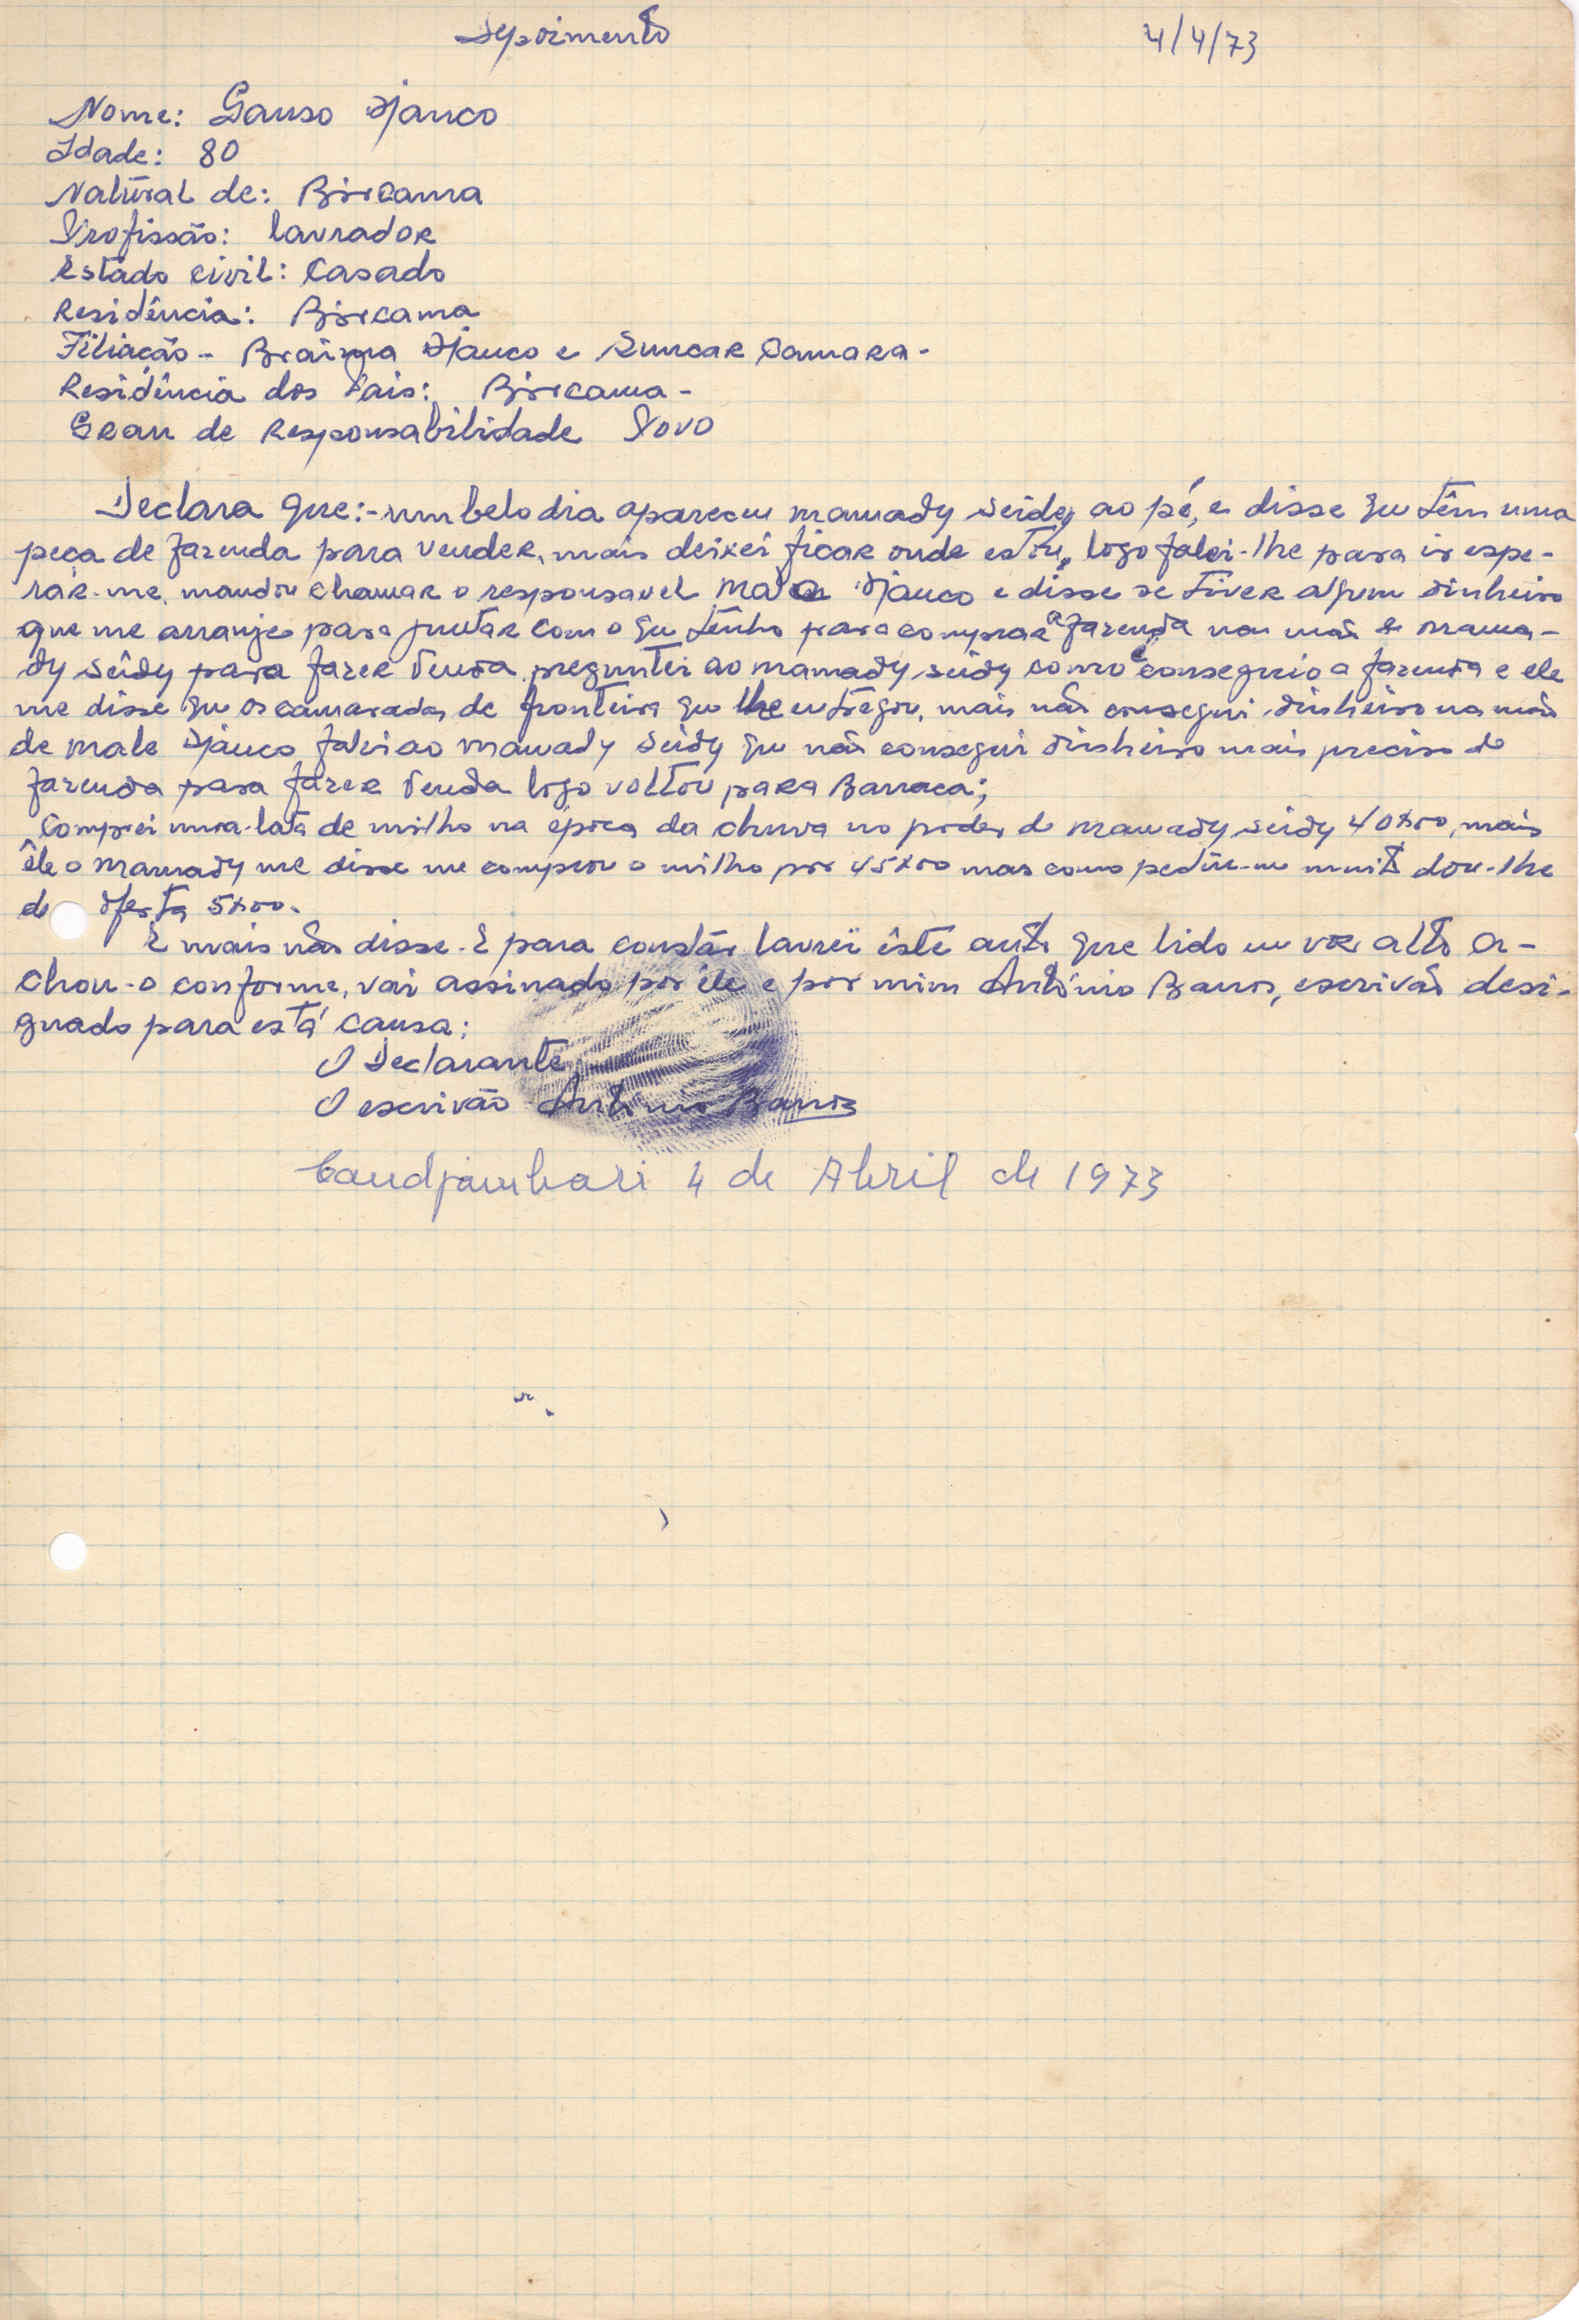 Depoimento 4/4/73
Nome: Sanso Djanco
Idade: 80
Natural de: Bircama
Profissão: lavrador
Estado civil: Casado
Residência: Bircama
Filiação - Braima Djanco e Suncar Camara -
Residência dos Pais: Bircama -
Grau de Responsabilidade Povo
Declara que:- um belo dia apareceu mamady seidy ao pé, e disse que têm uma
peca de fazenda para vender, mais deixei ficar onde estou, logo falei-lhe para ir espe-
rár-me, mandou chamar o responsavel Male Djanco e disse se tiver algum dinheiro
que me arranje para juntar com o que tenho para comprar a fazenda na mão de mama-
dy seidy para fazer venda preguntei ao mamady seidy como é conseguio a fazenda e ele
me disse que os camaradas de fronteira que lhe entregou, mais não consegui dinheiro na mão
de male Djanco falei ao mamady seidy que não consegui dinheiro mais preciso de
fazenda para fazer venda logo voltou para Barraca;
Comprei uma lata de milho na época da chuva no poder de mamady seidy 40$00, mais
êle o mamady me disse me comprou o milho por 45$00 mas como pediu-me muito dou-lhe
de oferta 5$00.
E mais não disse. E para constár lavreï êste auto que lido em voz alto a-
chou-o conforme, vai assinado por êle e por mim António Barros, escrivão desi-
gnado para está causa:
O Declarante
O escrivão António Barros
Candjambari 4 de Abril de 1973